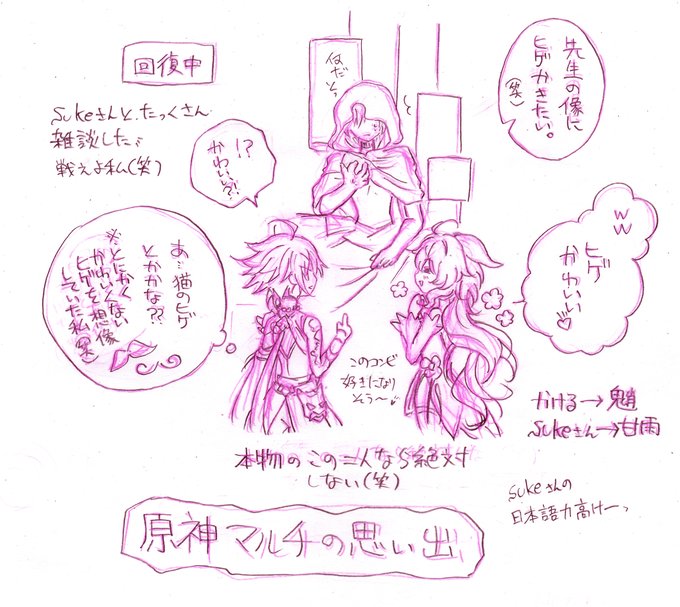 回復中
sukeさんと、たっくさん
雑談した。
戦えよ私(笑)
何だ
そう
先生の像に
ヒゲかきたい。
(笑)
!?
かわいい?!
ww
ヒゲ
かわいい♡
あ…猫のヒゲ
とかかな??
※とにかく
かわいくない
ヒゲを想像
していた私(笑)
このコンビ
好きになり
そう〜♪
かける→魈
sukeさん→甘雨
本物のこの二人なら絶対
しない(笑)
sukeさんの
日本語力高けーっ
原神マルチの思い出